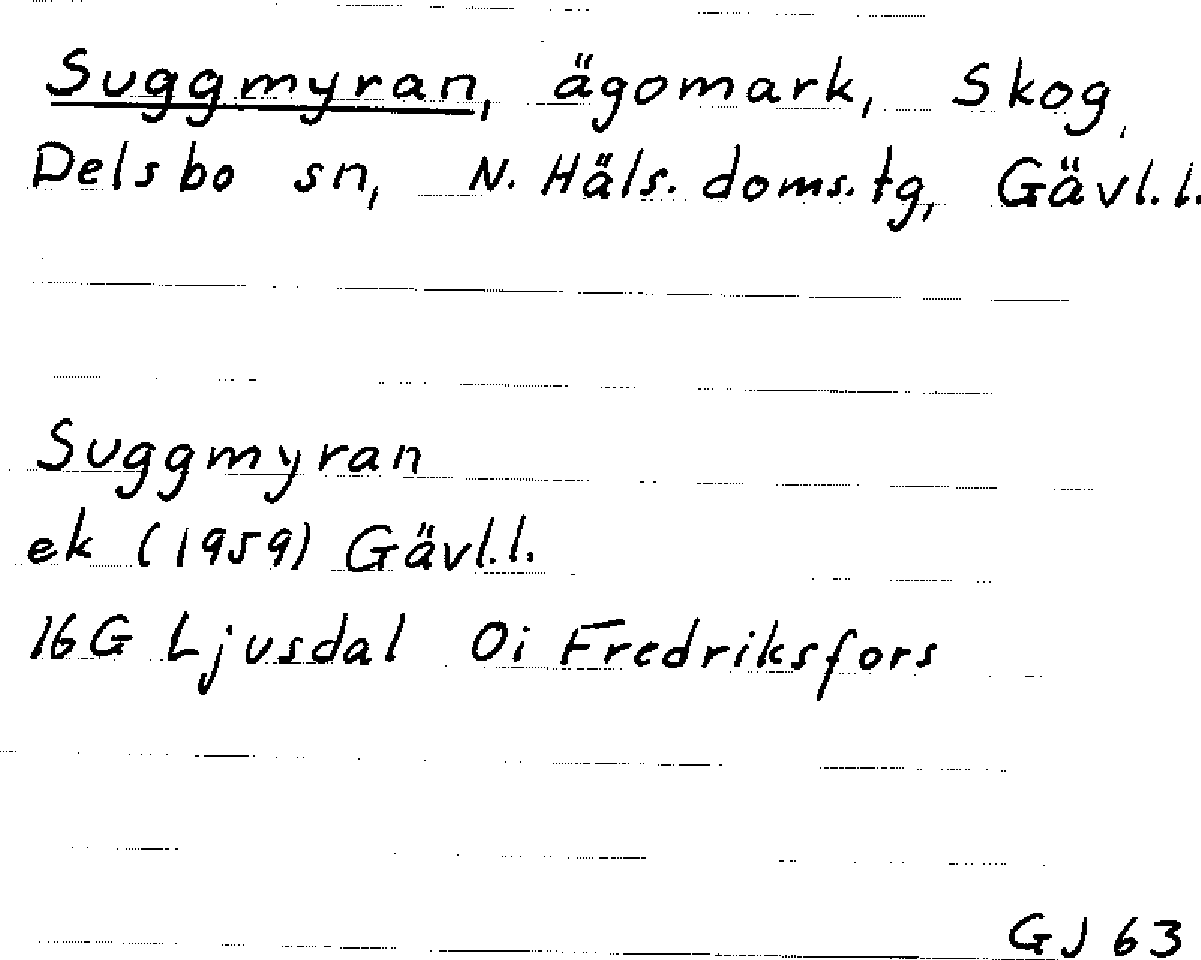 Suggmyran, ägomark, Skog,
Delsbo sn, N. Häls. doms. tg, Gävl.l.
Suggmyran
ek (1959) Gävl.l.
16G Ljusdal 0i Fredriksfors
GJ 63